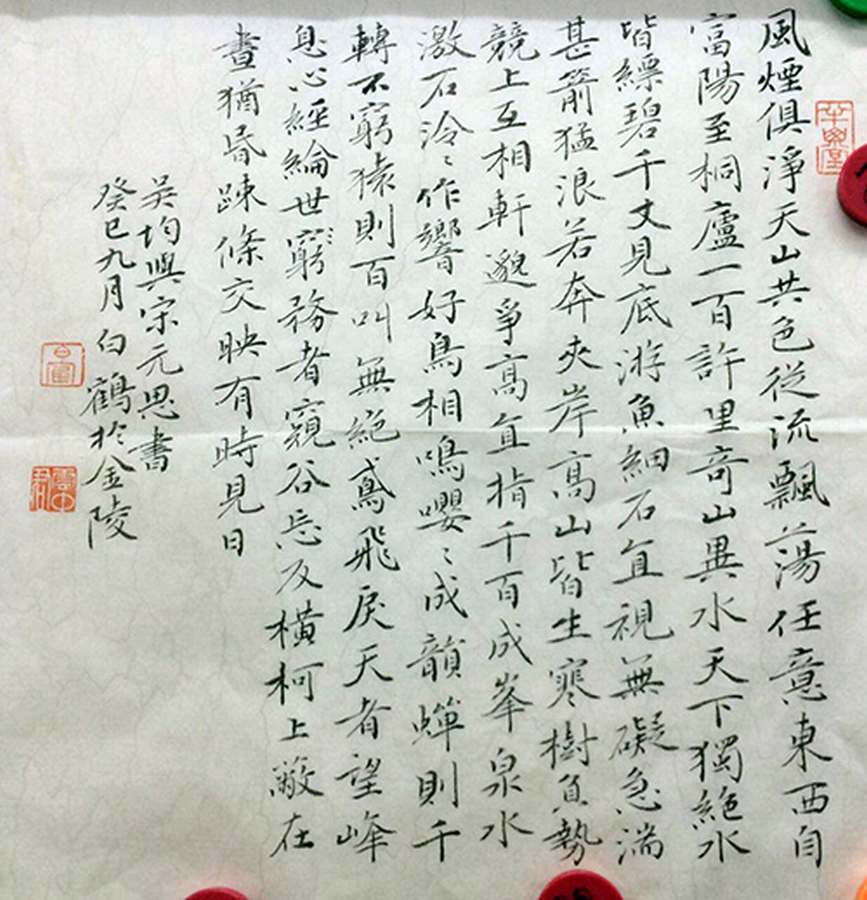 風煙俱淨天山共色從流飄蕩任意東西自
富陽至桐廬一百許里奇山異水天下獨絕水
皆縹碧千丈見底游魚細石直視無礙急湍
甚箭猛浪若奔夾岸高山皆生寒樹負勢
競上互相軒邈爭高直指千百成峯泉水
激石泠〻作響好鳥相鳴嚶〻成韻蟬則千
轉不窮猿則百叫無絕鳶飛戾天者望峰
息心經綸世窮務者窺谷忘反橫柯上蔽在
晝猶昏疎條交映有時見日
吴均與宋元思書
癸巳九月白鶴於金陵